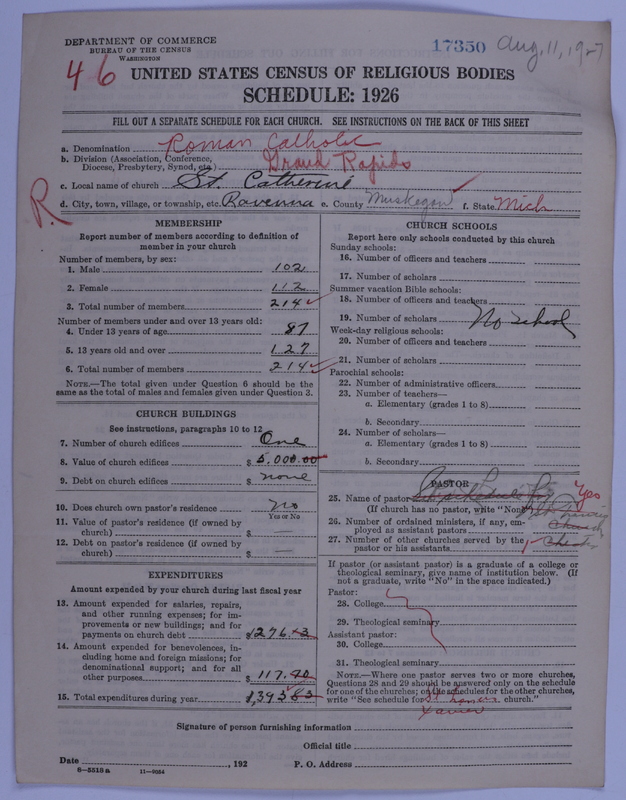 DEPARTMENT OF COMMERCE
BUREAU OF THE CENSUS
WASHINGTON
17350 Aug. 11, 1927
46
UNITED STATES CENSUS OF RELIGIOUS BODIES
SCHEDULE: 1926
FILL OUT A SEPARATE SCHEDULE FOR EACH CHURCH. SEE INSTRUCTIONS ON THE BACK OF THIS SHEET
a. Denomination Roman Catholic
b. Division (Association, Conference, Diocese, Presbytery, Synod, etc.) Grand Rapids
c. Local name of church St. Catherine
R
d. City, town, village, or township, etc. Ravenna e. County Muskegon f. State Mich
MEMBERSHIP
Report number of members according to definition of
member in your church
Number of members, by sex:
1. Male 102
2. Female 112
3. Total number of members 214
Number of members under and over 13 years old:
4. Under 13 years of age 87
5. 13 years old and over 127
6. Total number of members 214
NOTE.—The total given under Question 6 should be the
same as the total of males and females given under Question 3.
CHURCH BUILDINGS
See instructions, paragraphs 10 to 12
7. Number of church edifices One
8. Value of church edifices $ 5,000.00
9. Debt on church edifices $ none
10. Does church own pastor's residence No
Yes or No
11. Value of pastor's residence (if owned by
church) $ —
12. Debt on pastor's residence (if owned by
church) $ —
EXPENDITURES
Amount expended by your church during last fiscal year
13. Amount expended for salaries, repairs,
and other running expenses; for im-
provements or new buildings; and for
payments on church debt $
14. Amount expended for benevolences, in-
cluding home and foreign missions; for
denominational support; and for all
other purposes $ 117.
15. Total expenditures during year $
CHURCH SCHOOLS
Report here only schools conducted by this church
Sunday schools:
16. Number of officers and teachers
17. Number of scholars
Summer vacation Bible schools:
18. Number of officers and teachers
19. Number of scholars No school
Week-day religious schools:
20. Number of officers and teachers
21. Number of scholars
Parochial schools:
22. Number of administrative officers
23. Number of teachers—
a. Elementary (grades 1 to 8)
b. Secondary
24. Number of scholars—
a. Elementary (grades 1 to 8)
b. Secondary
PASTOR
25. Name of pastor Yes
(If church has no pastor, write "None")
26. Number of ordained ministers, if any, em- church
ployed as assistant pastors
27. Number of other churches served by the
pastor or his assistants
If pastor (or assistant pastor) is a graduate of a college or
theological seminary, give name of institution below. (If
not a graduate, write "No" in the space indicated.)
Pastor:
28. College
29. Theological seminary
Assistant pastor:
30. College
31. Theological seminary
NOTE.—Where one pastor serves two or more churches,
Questions 28 and 29 should be answered only on the schedule
for one of the churches; on the schedules for the other churches,
write "See schedule for St Francis church."
Xavier
Signature of person furnishing information
Official title
Date , 192 P. O. Address
6—5518a 11—9054